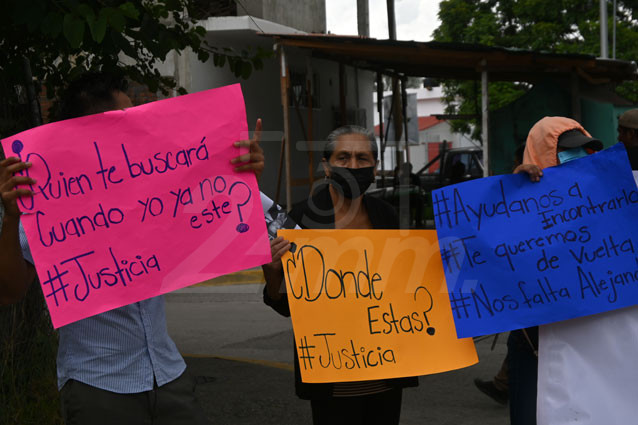 ¿Quien te buscará
Cuando yo ya no
este?
#Justicia
¿Donde
Estas?
#Justicia
#Ayudanos a
Incontrarlo
#Te queremos
de Vuelta
#Nos falta